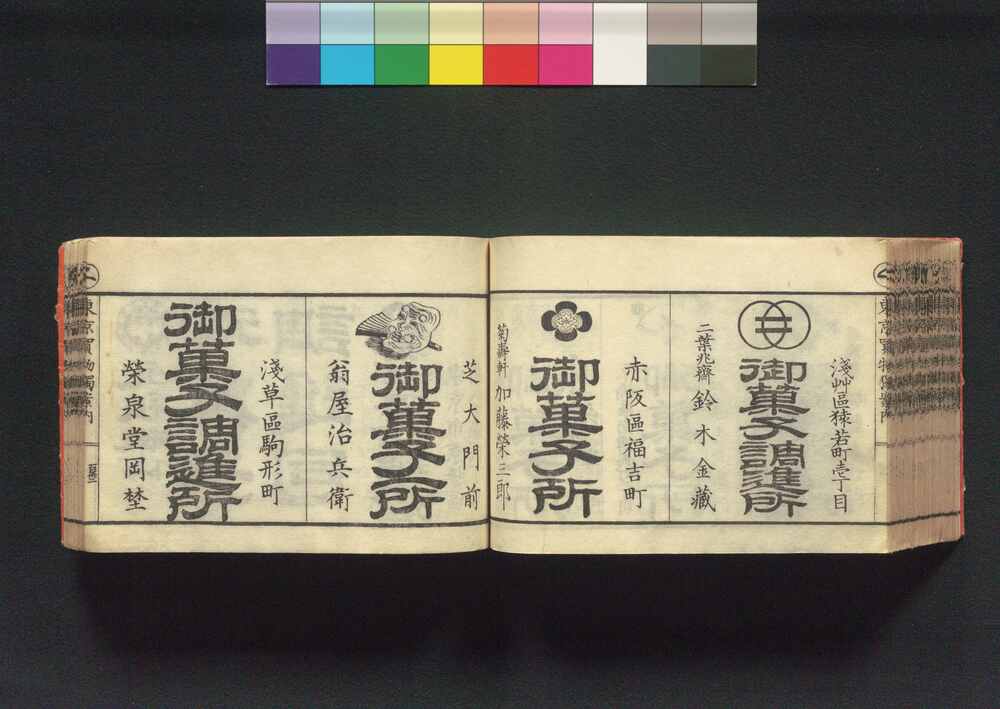 淺艸區猿若町壱丁目
御菓子調進所
二葉兆齋 鈴木金藏
赤阪區福吉町
御菓子所
菊壽軒 加藤榮三郎
芝大門前
御菓子所
翁屋治兵衛
淺草區駒形町
御菓子調進所
榮泉堂岡埜
東京買物獨案内